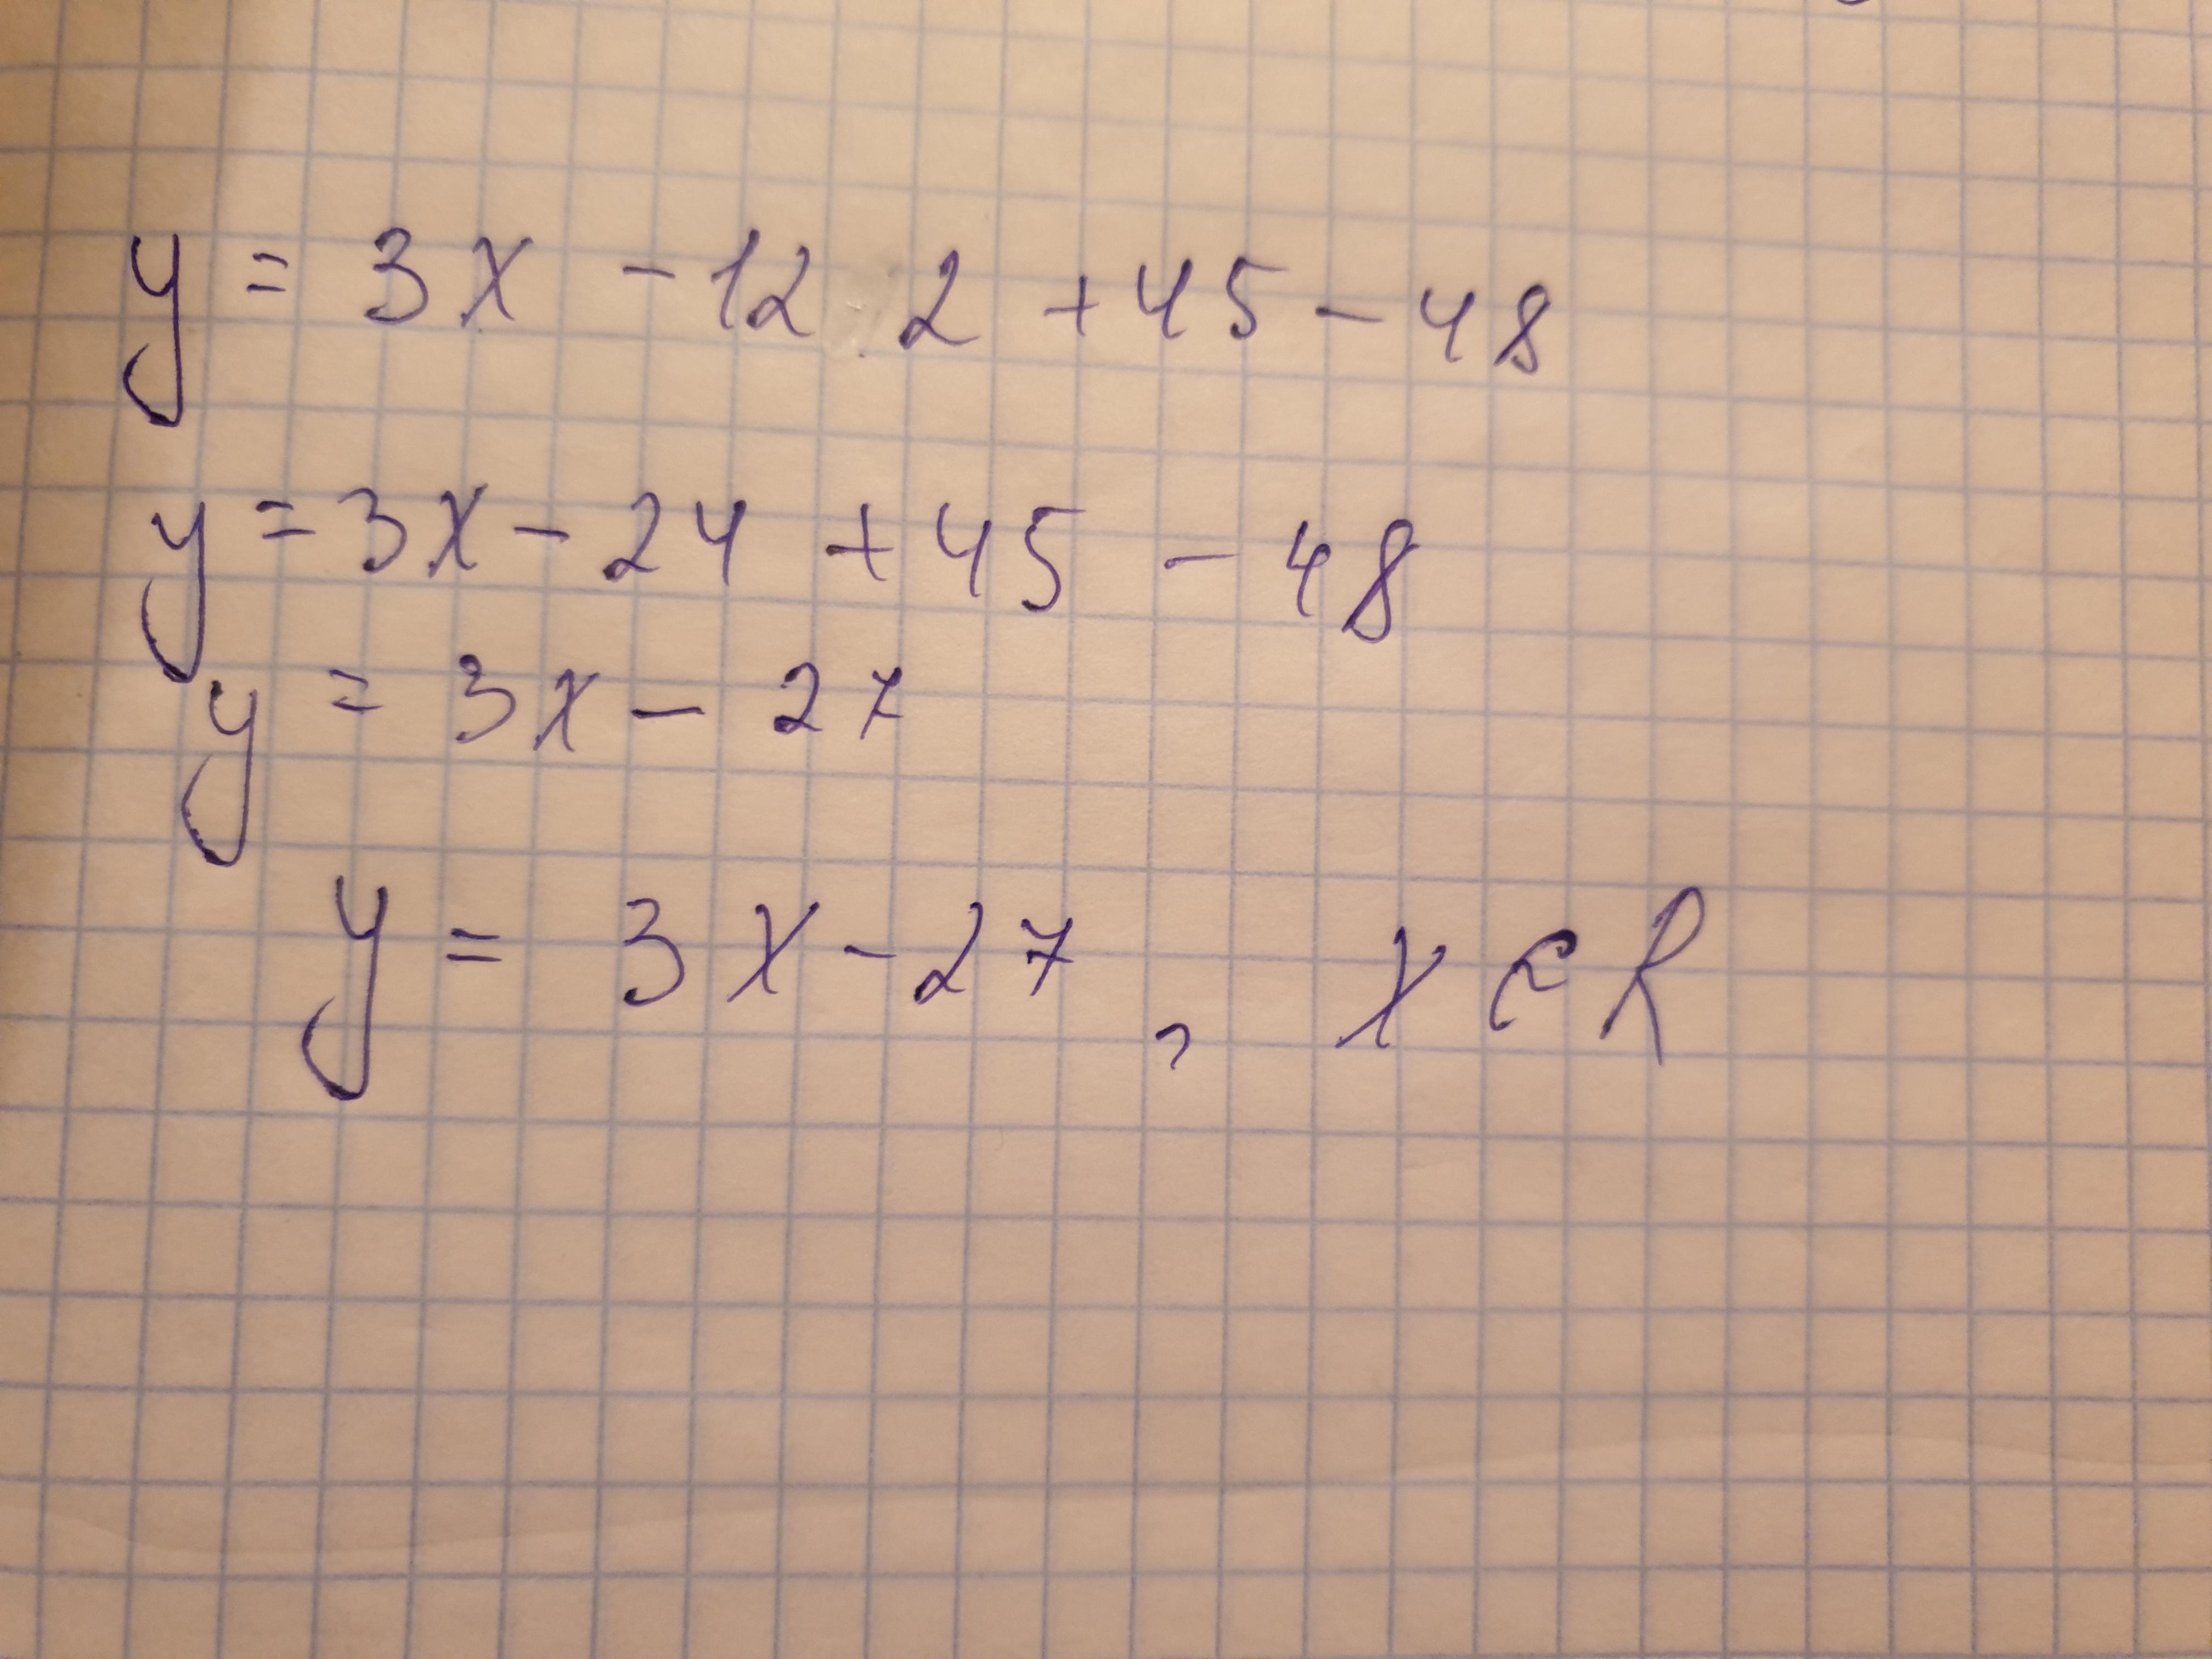 y = 3x - 12 2 + 45 - 48
y = 3x - 24 + 45 - 48
y = 3x - 27
y = 3x - 27 , x ∈ R